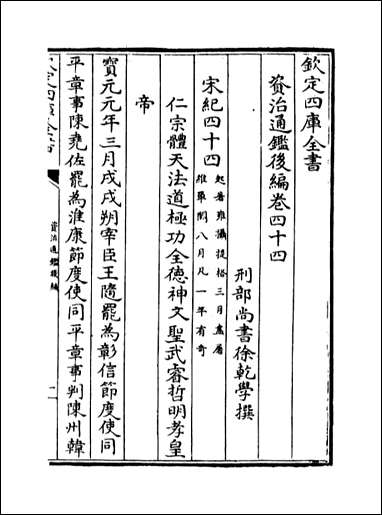 欽定四庫全書
資治通鑑後編卷四十四
刑部尚書徐乾學撰
宋紀四十四
起著雍攝提格三月盡屠
維單閼八月凡一年有奇
仁宗體天法道極功全德神文聖武睿哲明孝皇
帝
寳元元年三月戊戌朔宰臣王隨罷為彰信節度使同
平章事陳堯佐罷為淮康節度使同平章事判陳州韓
欽定四庫全書
資治通鑑後編
一